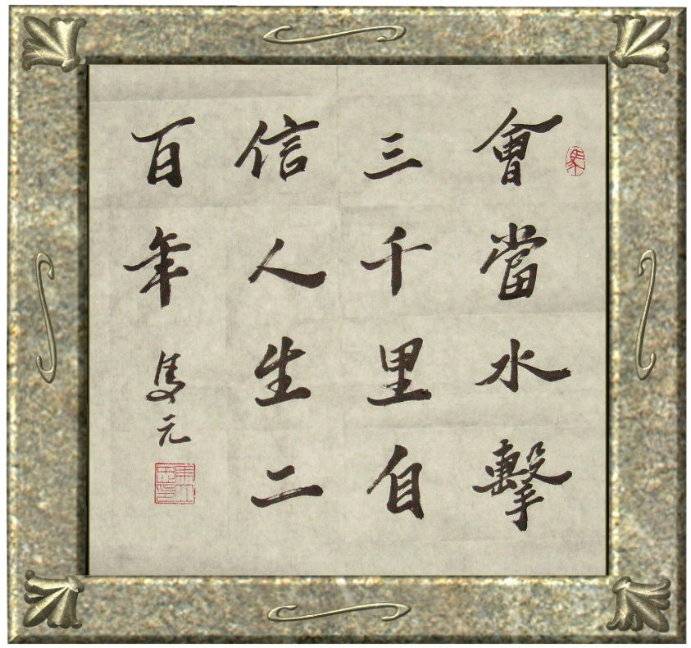 會當水擊
三千里自
信人生二
百年
馬元